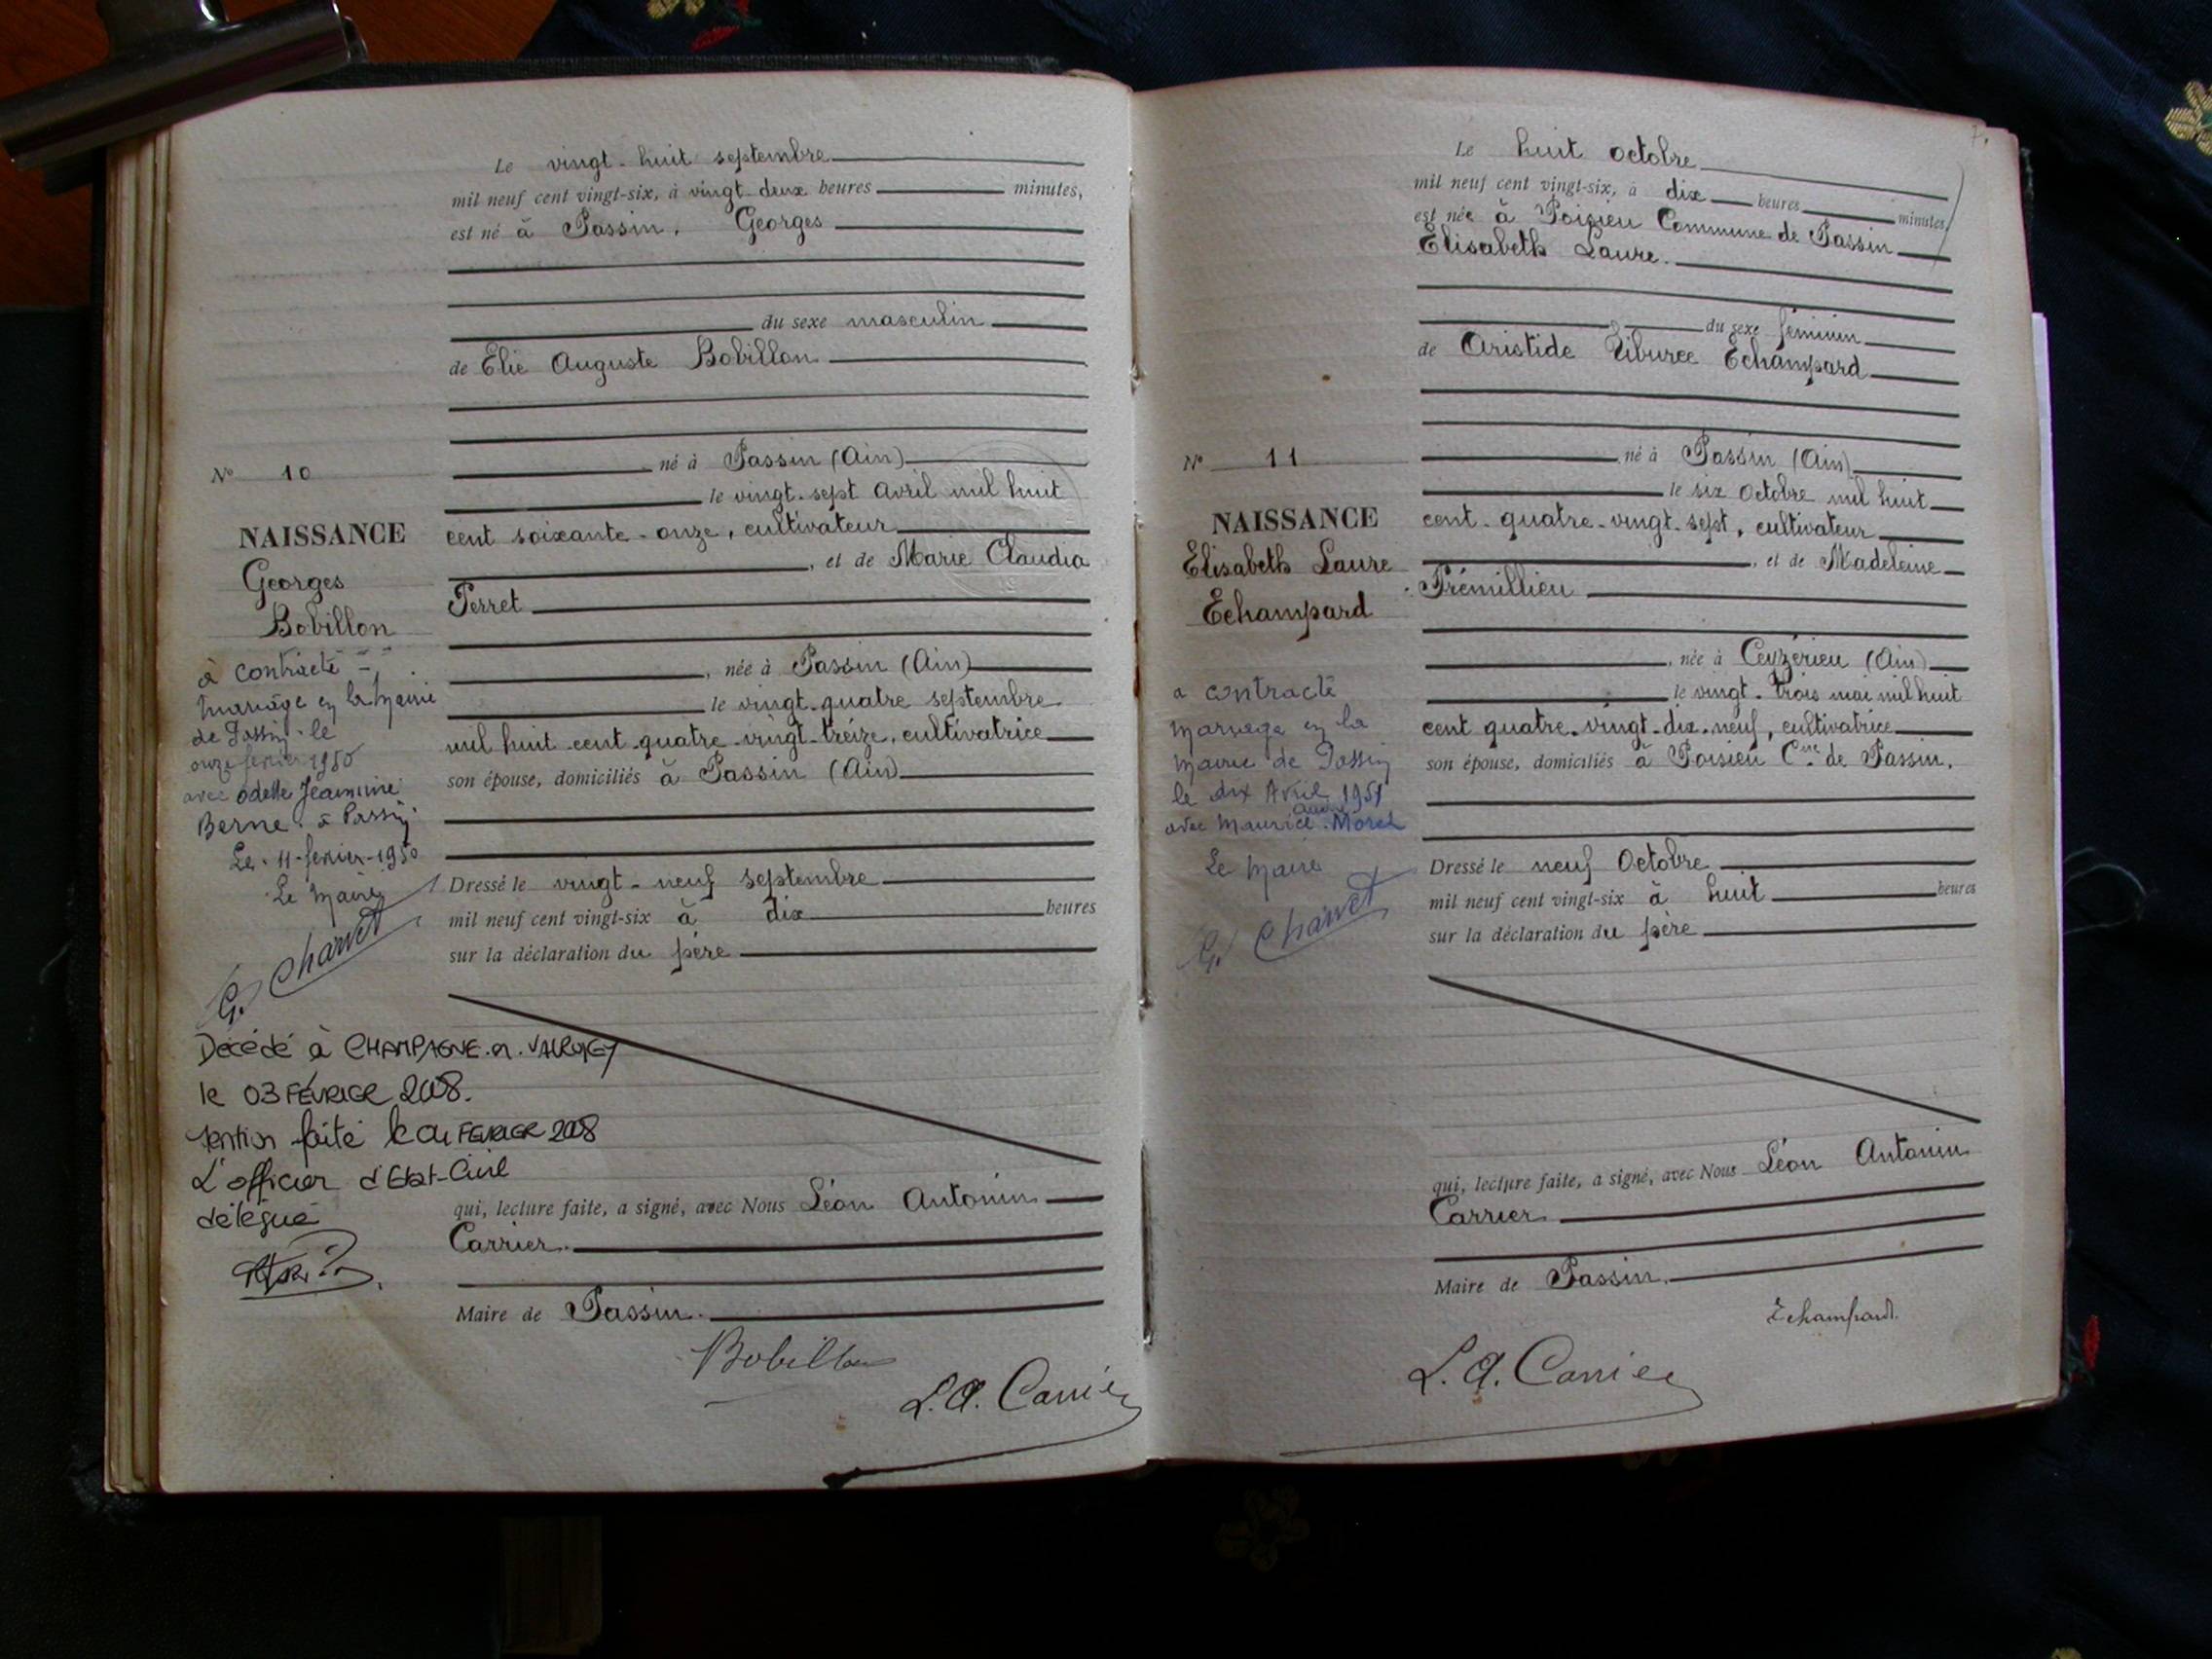 Le vingt-huit septembre
mil neuf cent vingt-six, à vingt deux heures minutes,
est né à Passin, Georges
du sexe masculin
de Elie Auguste Bobillon
né à Passin (Ain)
le vingt-sept Avril mil huit
cent soixante-onze, cultivateur
, et de Marie Claudia
Perret
, née à Passin (Ain)
le vingt-quatre septembre
mil huit-cent-quatre-vingt-treize, cultivatrice
son épouse, domiciliés à Passin (Ain)
Dressé le vingt-neuf septembre
mil neuf cent vingt-six à dix heures
sur la déclaration du père
qui, lecture faite, a signé, avec Nous Léon Antonin
Carrier.
Maire de Passin.
Bobillon
L. A. Carrier
No 10
NAISSANCE
Georges
Bobillon
à contracté
mariage en la mairie
de Passin le
onze fevrier 1950
avec Odette Jeannine
Berne à Passin
Le 11-fevrier-1950
Le Maire
G. Charvet
Décédé à CHAMPAGNE.en.VALROMEY
le 03 FÉVRIER 2008.
mention faite le 04 FEVRIER 2008
L'officier d'Etat-Civil
délégué
7.
Le huit octobre
mil neuf cent vingt-six, à dix heures minutes,
est née à Poisieu Commune de Passin
Elisabeth Laure.
du sexe féminin
de Aristide Tiburce Echampard
né à Passin (Ain)
le six Octobre mil huit
cent-quatre-vingt-sept, cultivateur
, et de Madeleine
Prémillieu
, née à Ceyzérieu (Ain)
le vingt-trois mai mil huit
cent quatre-vingt-dix-neuf, cultivatrice
son épouse, domiciliés à Poisieu Cne de Passin.
Dressé le neuf Octobre
mil neuf cent vingt-six à huit heures
sur la déclaration du père
qui, lecture faite, a signé, avec Nous Léon Antonin
Carrier
Maire de Passin.
Echampard
L. A. Carrier
No 11
NAISSANCE
Elisabeth Laure
Echampard
a contracté
mariage en la
mairie de Passin
le dix Avril 1951
avec Maurice Morel
Le Maire
G. Charvet